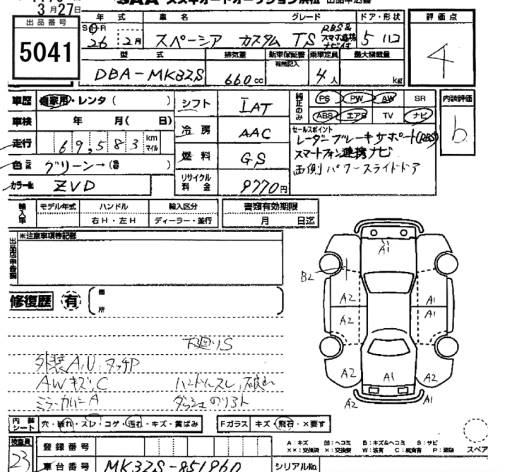 3月27日
SAA スズキオートオークション浜松 出品申込書
出品番号 年式 車名 グレード ドア・形状 評価点
5041
26 2月 スペーシア カスタム TS RBS& スマホ連携 ナビ付 5 112
4
型式 排気量 新車保証書 乗車定員 最大積載量
DBA-MK32S 660cc 4人 kg
車歴 自家用・レンタ( )
シフト IAT
純正のみ PS PW AW SR
ABS エアB TV ナビ
内装評価 b
車検 年 月( 日)
冷房 AAC
セールスポイント
レーダーブレーキサポート(RBS)
スマートフォン連携ナビ
両側パワースライドドア
走行 69,583 km マイル
燃料 GS
色 グリーン→( )
リサイクル料金 9770円
カラーNo. ZVD
輸入車 モデル年式 ハンドル 輸入区分 書類有効期限
右H・左H ディーラー・並行 月 日迄
※注意事項特記欄
修復歴 有
箇所
A1
B2
A2 A1
A2 A1
A2 A2
A1
下廻りS
外装A,U,タッチP
AWキズ,C ハンドルスレ,
ミラーカバーA
内装 シート 穴・破れ・スレ・コゲ・汚れ・キズ・黄ばみ Fガラス キズ・飛石・×要す
検査員 23
登録番号
A:キズ U:ヘコミ B:キズ&ヘコミ S:サビ
XX:交換済 X:交換要 W:波有 C:腐食有 P:塗装 スペア
車台番号 MK32S-851860 シリアルNo.